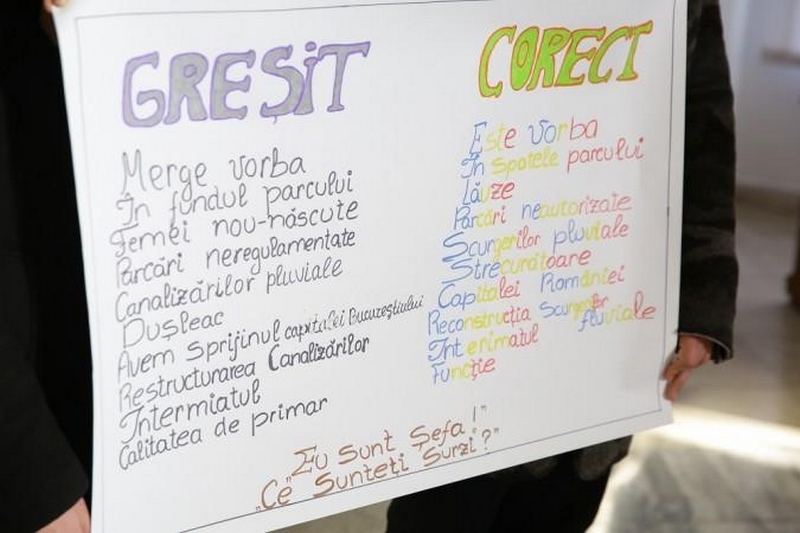 GREȘIT
Merge vorba
În fundul parcului
Femei nou-născute
Parcări neregulamentate
Canalizărilor pluviale
Dușleac
Avem sprijinul capitalei Bucureștiului
Restructurarea Canalizărilor
Intermiatul
Calitatea de primar
CORECT
Este vorba
În Spatele parcului
Lăuze
Parcări neautorizate
Scurgerilor pluviale
Strecurătoare
Capitalei României
Reconstrucția Scurgerilor
fluviale
Interimatul
Funcție
"Eu sunt Șefa!"
„Ce" Sunteți Surzi"?"